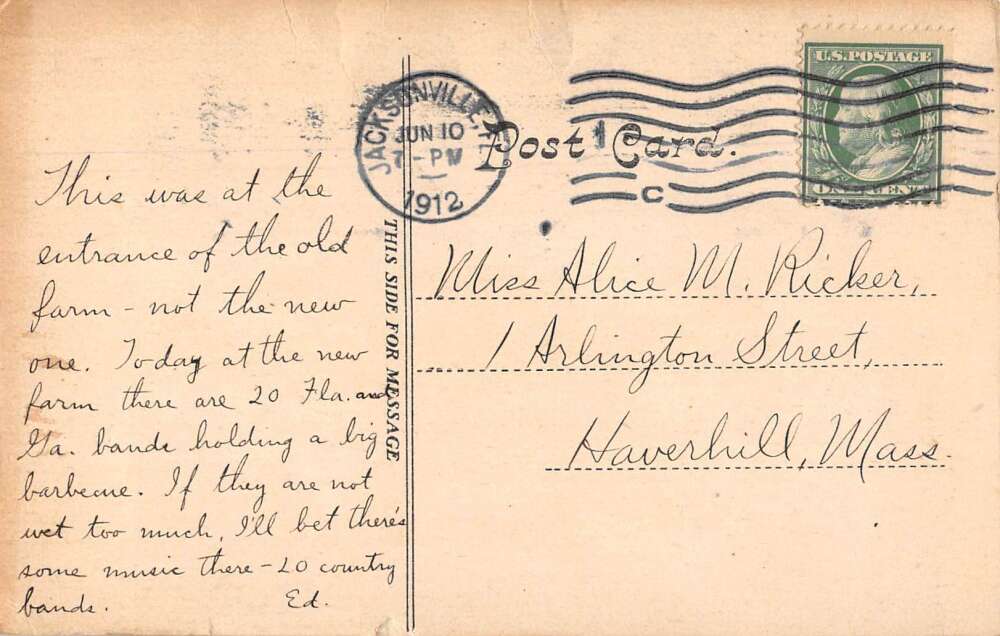 This was at the
entrance of the old
farm - not the new
one. Today at the new
farm there are 20 Fla. and
Ga. bands holding a big
barbecue. If they are not
wet too much, I'll bet there's
some music there - 20 country
bands. Ed.
THIS SIDE FOR MESSAGE
JACKSONVILLE, FL
JUN 10
7 - PM
1912
Post Card.
1
C
U.S. POSTAGE
Miss Alice M. Ricker,
1 Arlington Street,
Haverhill, Mass.